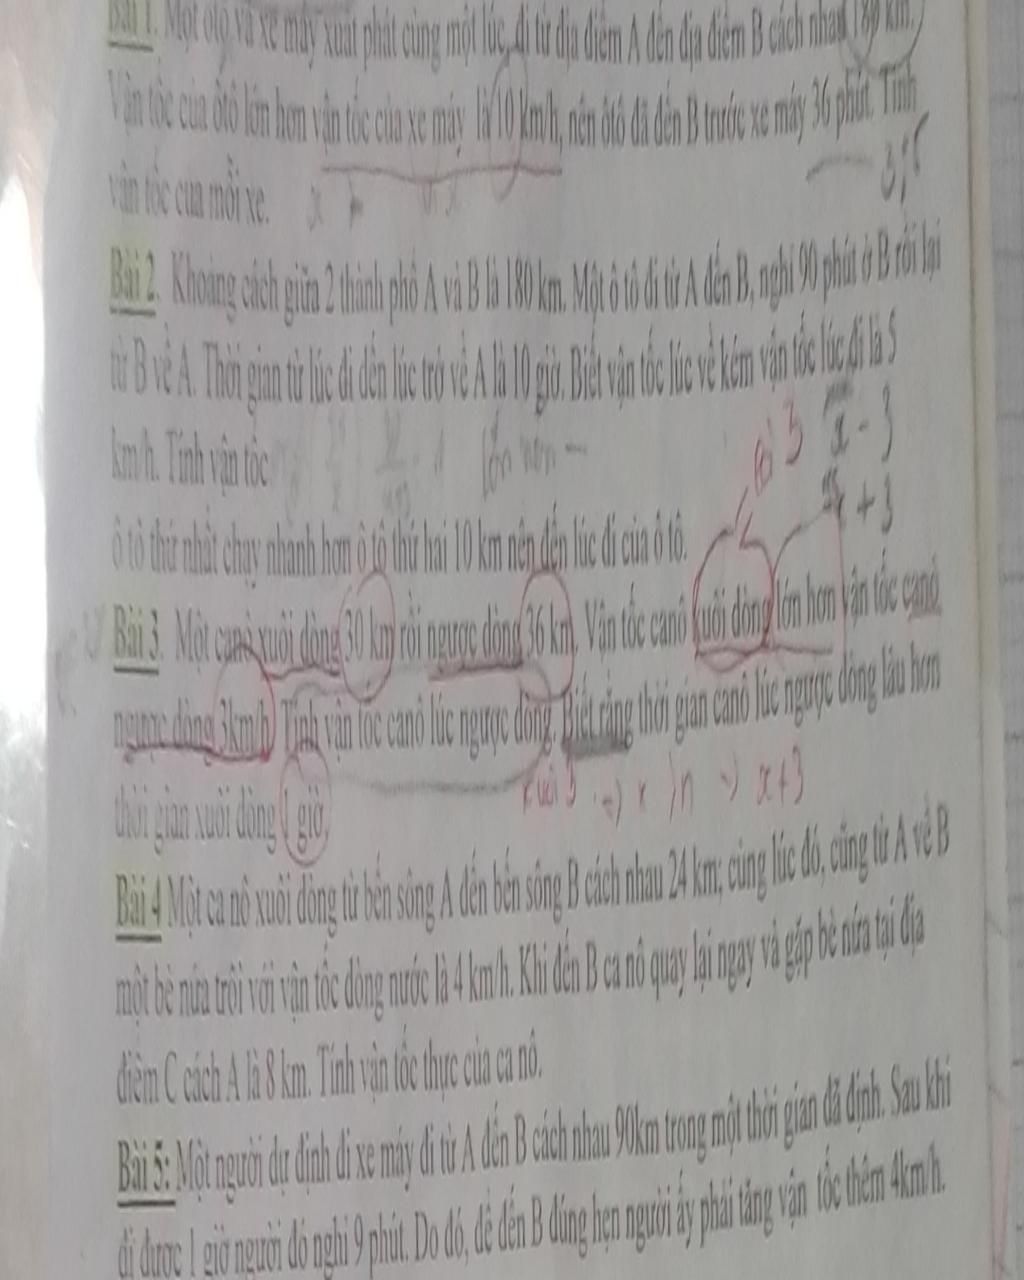 Bài 1. Một ôtô và xe máy xuất phát cùng một lúc, đi từ địa điểm A đến địa điểm B cách nhau 180 km.
Vận tốc của ôtô lớn hơn vận tốc của xe máy là 10 km/h, nên ôtô đã đến B trước xe máy 36 phút. Tính
vận tốc của mỗi xe.
Bài 2. Khoảng cách giữa 2 thành phố A và B là 180 km. Một ô tô đi từ A đến B, nghỉ 90 phút ở B rồi lại
từ B về A. Thời gian từ lúc đi đến lúc trở về A là 10 giờ. Biết vận tốc lúc về kém vận tốc lúc đi là 5
x - 3
km/h. Tính vận tốc
+ 3
ô tô thứ nhất chạy nhanh hơn ô tô thứ hai 10 km nên đến lúc đi của ô tô.
Bài 3. Một canô xuôi dòng 30 km rồi ngược dòng 36 km. Vận tốc canô xuôi dòng lớn hơn vận tốc canô
ngược dòng 3km/h. Tính vận tốc canô lúc ngược dòng. Biết rằng thời gian canô lúc ngược dòng lâu hơn
x + 3
thời gian xuôi dòng 1 giờ.
Bài 4 Một ca nô xuôi dòng từ bến sông A đến bến sông B cách nhau 24 km; cùng lúc đó, cũng từ A về B
một bè nứa trôi với vận tốc dòng nước là 4 km/h. Khi đến B ca nô quay lại ngay và gặp bè nứa tại địa
điểm C cách A là 8 km. Tính vận tốc thực của ca nô.
Bài 5: Một người dự định đi xe máy đi từ A đến B cách nhau 90km trong một thời gian đã định. Sau khi
đi được 1 giờ người đó nghỉ 9 phút. Do đó, để đến B đúng hẹn người ấy phải tăng vận tốc thêm 4km/h.